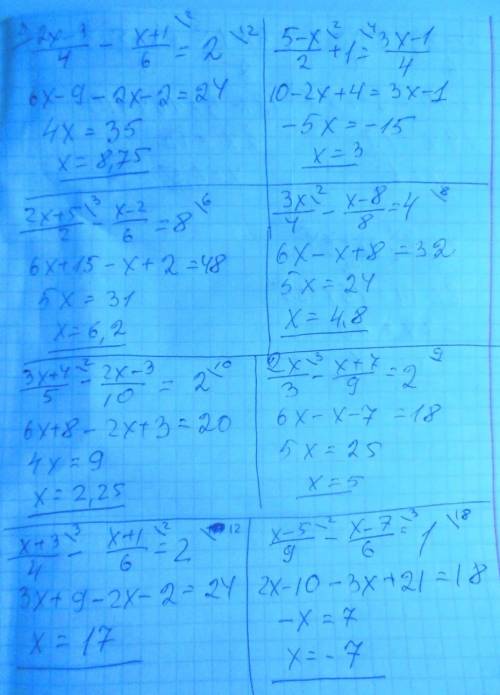 (2x-3)/4 - (x+1)/6 \2 = 2 \12
6x-9-2x-2=24
4x=35
x=8,75
(5-x)/2 \2 +1 \4 = (3x-1)/4
10-2x+4=3x-1
-5x=-15
x=3
(2x+5)/2 \3 - (x-2)/6 = 8 \6
6x+15-x+2=48
5x=31
x=6,2
3x/4 \2 - (x-8)/8 = 4 \8
6x-x+8=32
5x=24
x=4,8
(3x+4)/5 \2 - (2x-3)/10 = 2 \10
6x+8-2x+3=20
4x=9
x=2,25
2x/3 \3 - (x+7)/9 = 2 9
6x-x-7=18
5x=25
x=5
(x+3)/4 \3 - (x+1)/6 \2 = 2 \12
3x+9-2x-2=24
x=17
(x-5)/9 \2 - (x-7)/6 \3 = 1 \18
2x-10-3x+21=18
-x=7
x=-7